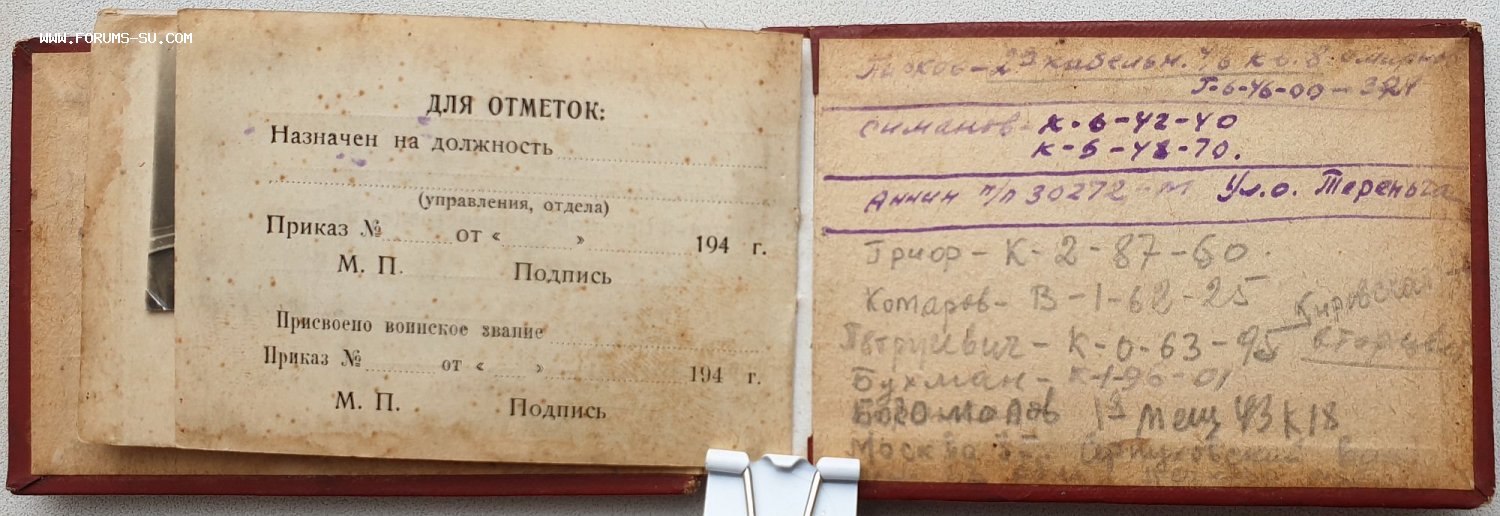 www.forums-su.com
ДЛЯ ОТМЕТОК:
Назначен на должность
(управления, отдела)
Приказ № от « » 194 г.
М. П. Подпись
Присвоено воинское звание
Приказ № от « » 194 г.
М. П. Подпись
2я кабельн. кв. 8.
Г-6-46-00-
Симанов - К-6-42-40
К-5-48-70.
Аннин п/п 30272-М Ул. о. Тереньга
Григор - К-2-87-60.
Комаров - В-1-62-25
Петрусевич - К-0-63-95 Кировская
Бухман - К-1-96-01
Богомолов 1я Мещ 43 К 18
Москва Серпуховский вал